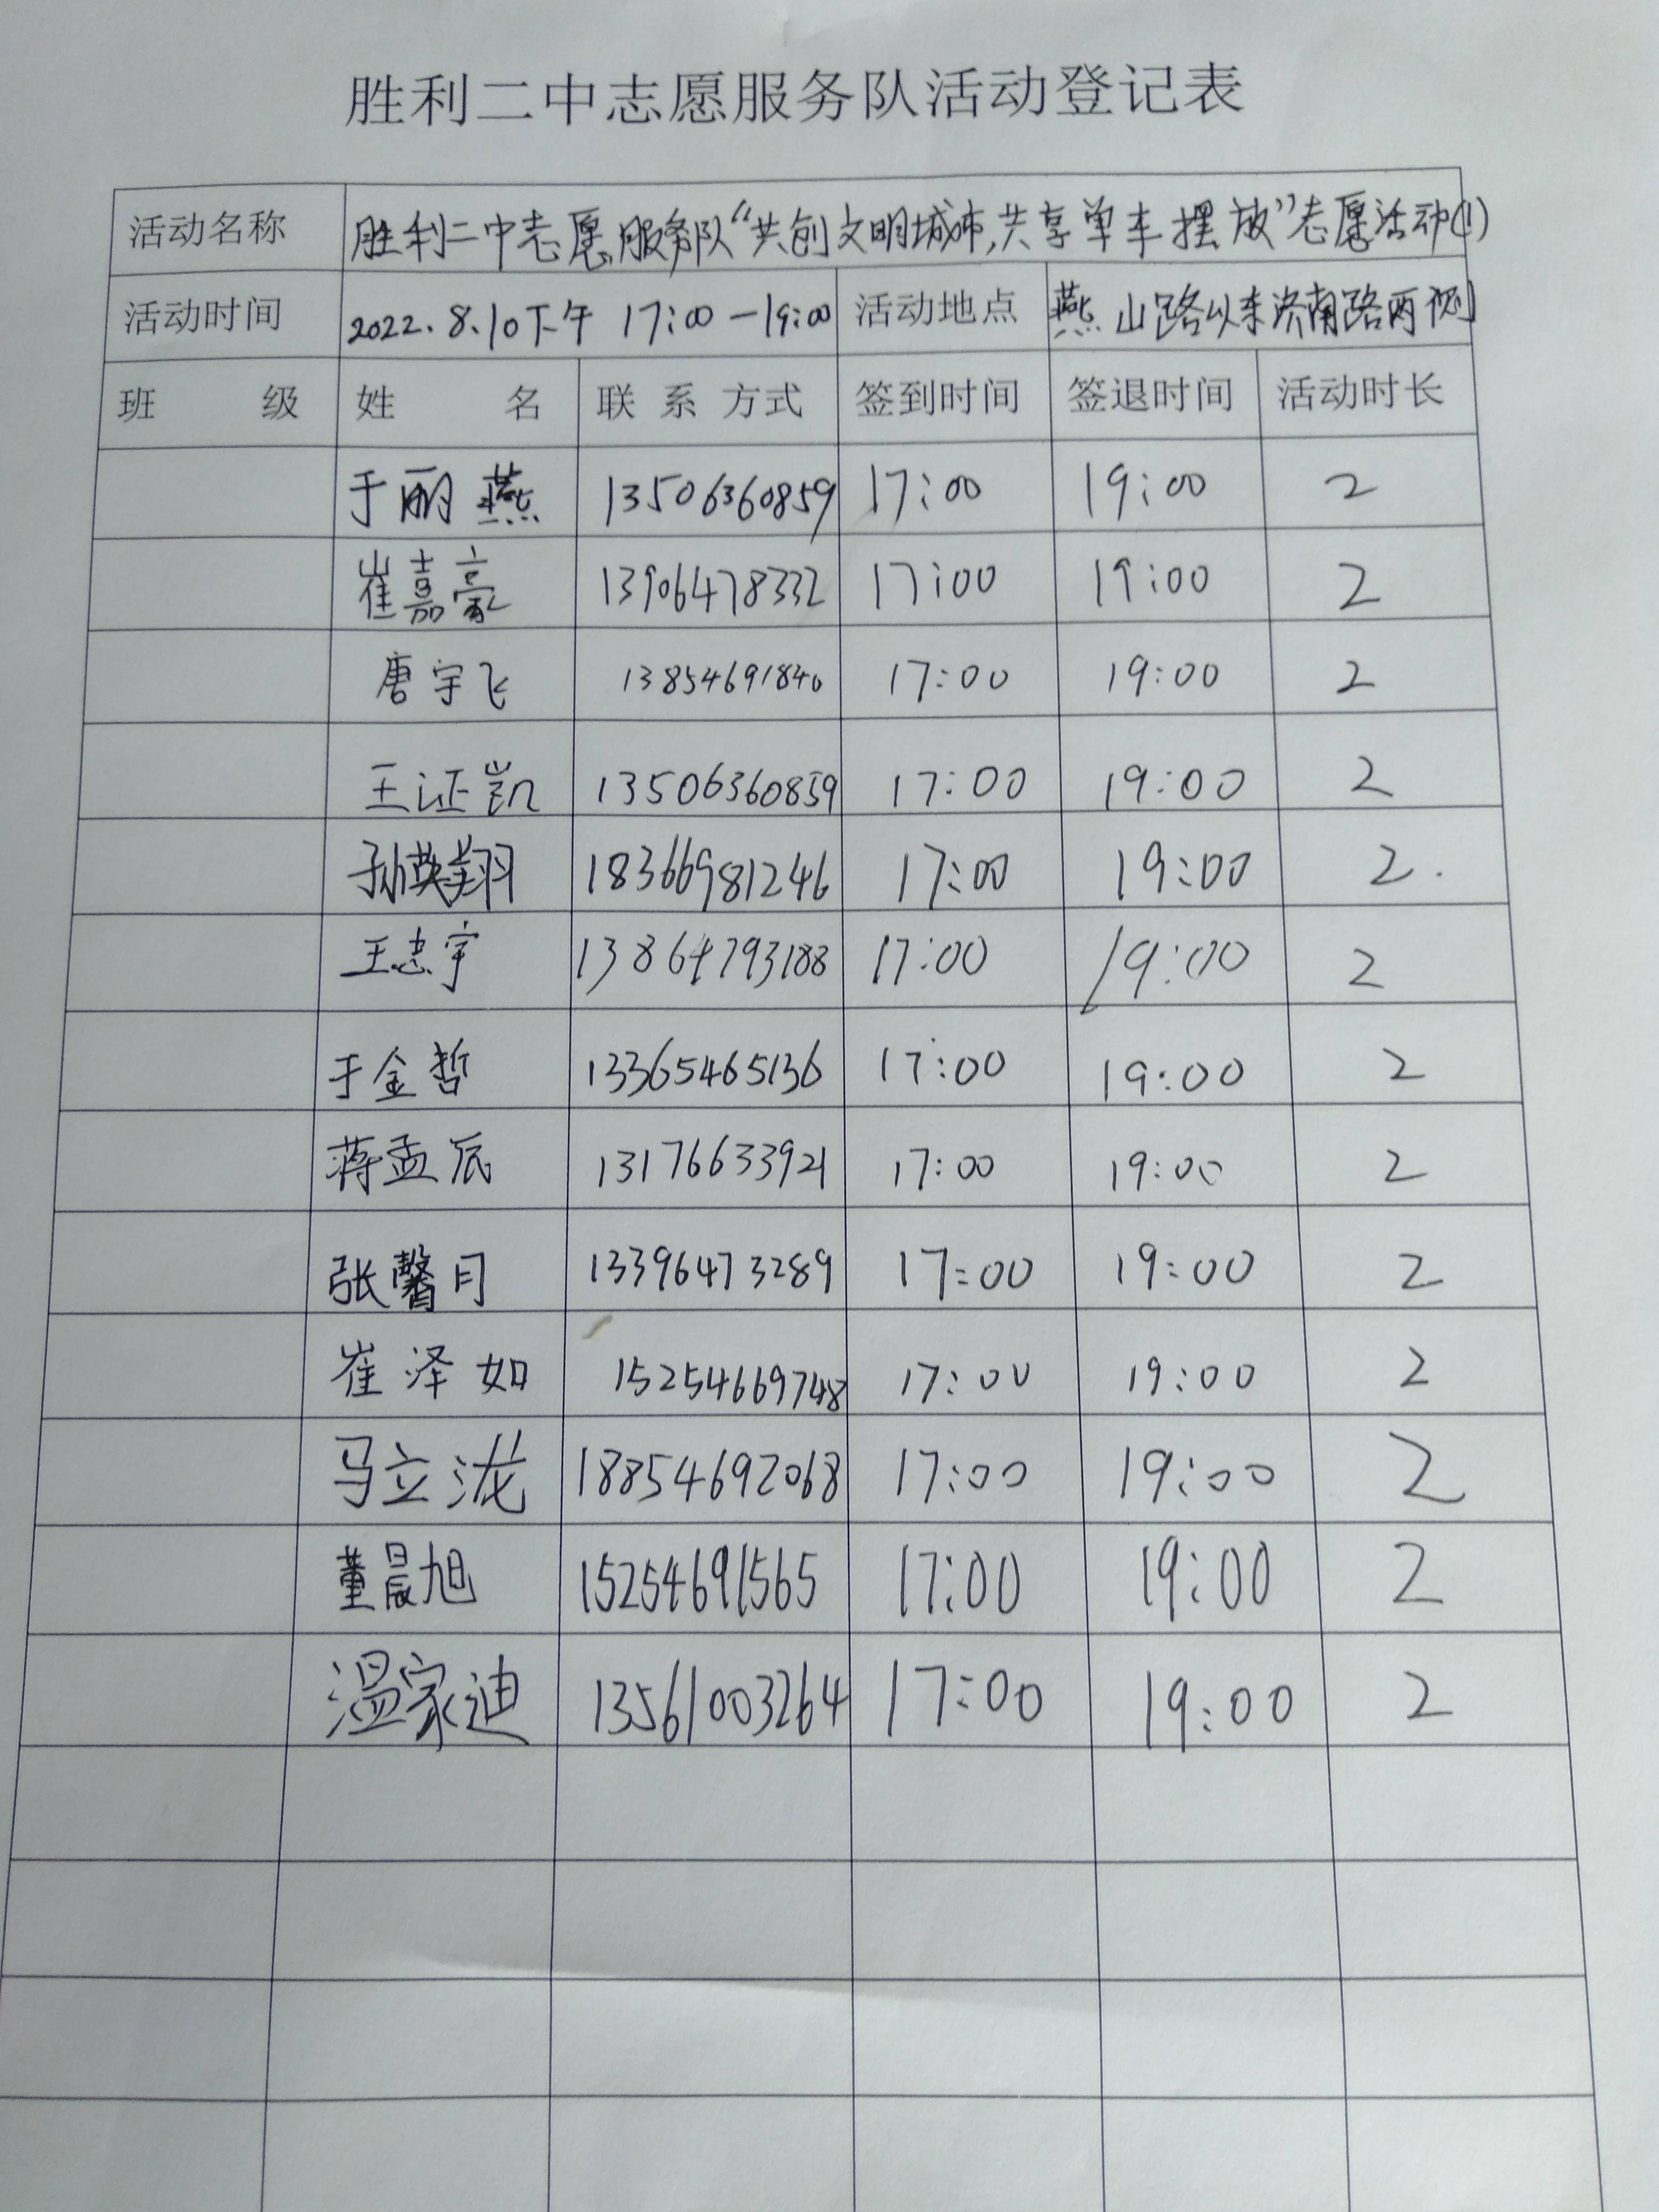 胜利二中志愿服务队活动登记表
活动名称 胜利二中志愿服务队“共创文明城市,共享单车摆放”志愿活动(1)
活动时间 2022.8.10下午 17:00—19:00 活动地点 燕山路以东济南路两侧
班 级 姓 名 联系方式 签到时间 签退时间 活动时长
于丽燕 13506360859 17:00 19:00 2
崔嘉豪 13906478332 17:00 19:00 2
唐宇飞 13854691840 17:00 19:00 2
王证凯 13506360859 17:00 19:00 2
孙英翔 18366981246 17:00 19:00 2.
王志宇 13864793188 17:00 19:00 2
于金哲 13365465136 17:00 19:00 2
蒋孟辰 13176633921 17:00 19:00 2
张馨月 13396473289 17:00 19:00 2
崔泽如 15254669748 17:00 19:00 2
马立泷 18854692068 17:00 19:00 2
董晨旭 15254691565 17:00 19:00 2
温家迪 13561003264 17:00 19:00 2